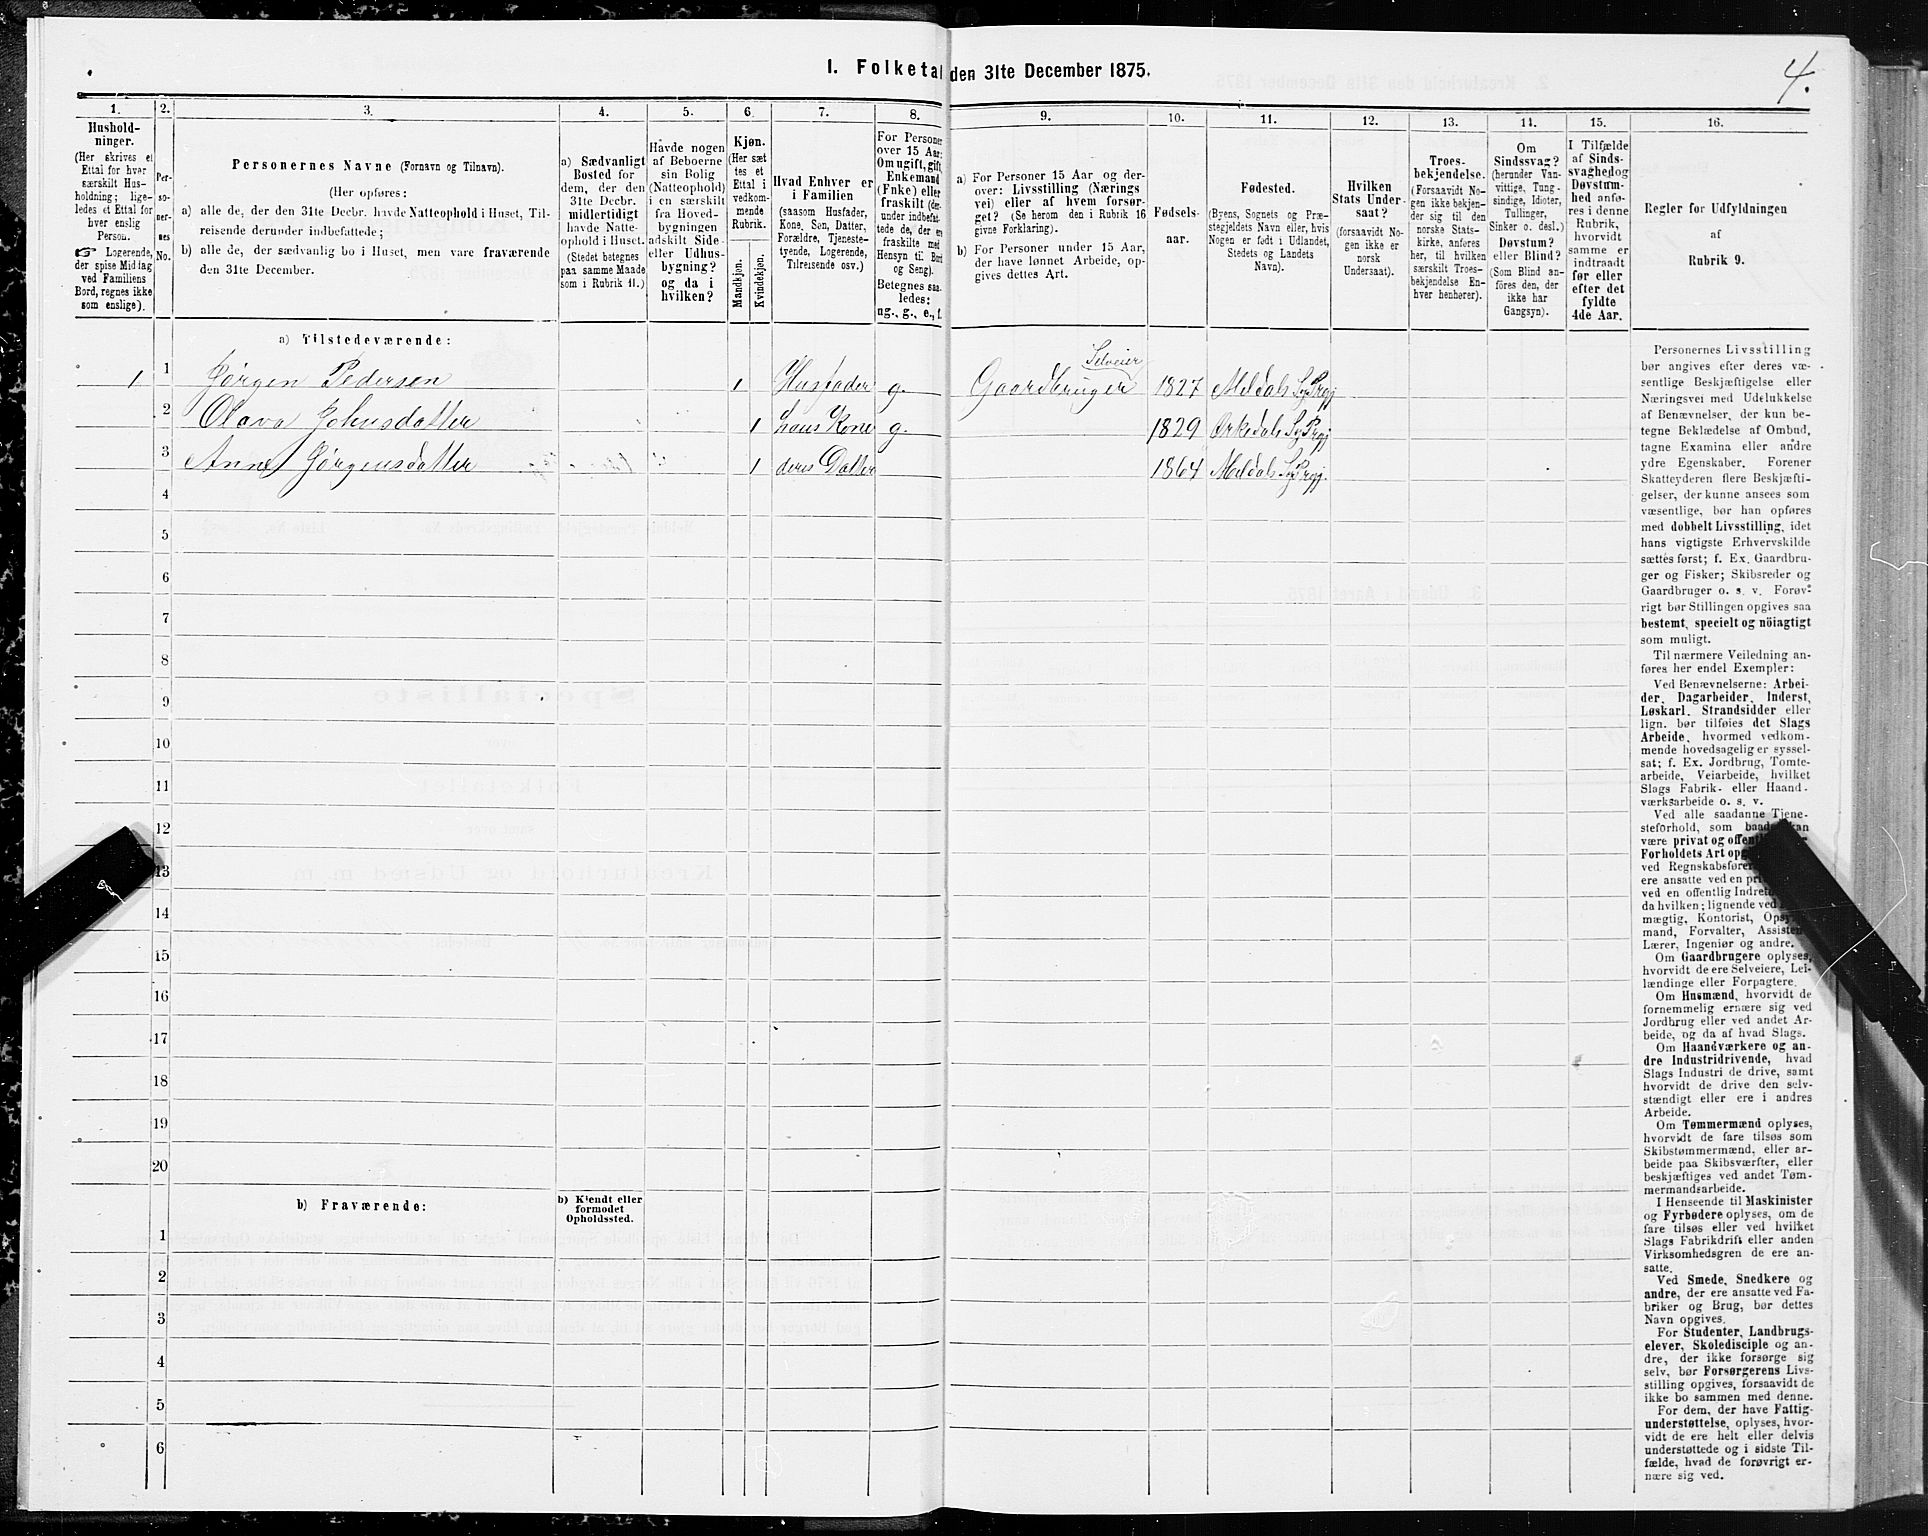 I. Folketal den 31te December 1875.
4.
1.
Hushold-
ninger.
(Her skrives et
Ettal for hver
særskilt Hus-
holdning; lige-
ledes et Ettal for
hver enslig
Person.
☞ Logerende,
der spise Middag
ved Familiens
Bord, regnes ikke
som enslige).
2.
Per-
so-
ner-
nes
No.
3.
Personernes Navne (Fornavn og Tilnavn).
(Her opføres:
a) alle de, der den 31te Decbr. havde Natteophold i Huset, Til-
reisende derunder indbefattede;
b) alle de, der sædvanlig bo i Huset, men vare fraværende
den 31te December.
4.
a) Sædvanligt
Bosted for
dem, der den
31te Decbr.
midlertidigt
havde Natte-
ophold i Huset.
(Stedet betegnes
paa samme Maade
som i Rubrik 11.)
5.
Havde nogen
af Beboerne
sin Bolig
(Natteophold)
i en særskilt
fra Hoved-
bygningen
adskilt Side-
eller Udhus-
bygning?
og da i
hvilken?
6.
Kjøn.
(Her sæt
tes et
Ettal i
vedkom-
mende
Rubrik.
Mandkjøn.
Kvindekjøn.
7.
Hvad Enhver er
i Familien
(saasom Husfader,
Kone, Søn, Datter,
Forældre, Tjeneste-
tyende, Logerende,
Tilreisende osv.)
8.
For Personer
over 15 Aar:
Om ugift, gift,
Enkemand
(Enke) eller
fraskilt (der-
under indbefat-
tede de, der ere
fraskilte med
Hensyn til Bord
og Seng).
Betegnes saa-
ledes:
ug., g., e., f.
9.
a) For Personer 15 Aar og der-
over: Livsstilling (Nærings
vei) eller af hvem forsør-
get? (Se herom den i Rubrik 16
givne Forklaring).
b) For Personer under 15 Aar,
der have lønnet Arbeide, op-
gives dettes Art.
10.
Fødsels-
aar.
11.
Fødested.
(Byens, Sognets og Præ-
stegjeldets Navn eller, hvis
Nogen er født i Udlandet,
Stedets og Landets
Navn).
12.
Hvilken
Stats Under-
saat?
(forsaavidt No-
gen ikke er
norsk
Undersaat).
13.
Troes-
bekjendelse.
(Forsaavidt No-
gen ikke bekjen-
der sig til den
norske Stats-
kirke, anføres
her, til hvilken
særskilt Troes-
bekjendelse En-
hver henhører).
14.
Om
Sindssvag?
(herunder Van-
vittige, Tung-
sindige, Idioter,
Tullinger,
Sinker o. desl.)
Døvstum?
eller Blind?
(Som Blind an-
føres den, der
ikke har
Gangsyn).
15.
I Tilfælde
af Sinds-
svaghed og
Døvstum-
hed anfø-
res i denne
Rubrik,
hvorvidt
samme er
indtraadt
før eller
efter det
fyldte
4de Aar.
16.
Regler for Udfyldningen
af
Rubrik 9.
a) Tilstedeværende:
Selveier
1 1 Jørgen Pedersen 1 Husfader g. Gaardbruger 1827 Meldals S. Prgj
2 Olava Johnsdatter 1 hans Kone g. 1829 Ørkedals S. Prgj
3 Anne Jørgensdatter 1 deres Datter 1864 Meldals S. Prgj.
4
5
6
7
8
9
10
11
12
13
14
15
16
17
18
19
20
b) Fraværende:
b) Kjendt eller
formodet
Opholdssted.
1
2
3
4
5
6
Personernes Livsstilling
bør angives efter deres væ-
sentlige Beskjæftigelse eller
Næringsvei med Udelukkelse
af Benævnelser, der kun be-
tegne Beklædelse af Ombud,
tagne Examina eller andre
ydre Egenskaber. Forener
Skatteyderen flere Beskjæfti-
gelser, der kunne ansees som
væsentlige, bør han opføres
med dobbelt Livsstilling, idet
hans vigtigste Erhvervskilde
sættes først; f. Ex. Gaardbru-
ger og Fisker; Skibsreder og
Gaardbruger o. s. v. Forøv-
rigt bør Stillingen opgives saa
bestemt, specielt og nöiagtigt
som muligt.
Til nærmere Veiledning an-
føres her endel Exempler:
Ved Benævnelserne: Arbei-
der, Dagarbeider, Inderst,
Løskarl, Strandsidder eller
lign. bør tilføies det Slags
Arbeide, hvormed vedkom-
mende hovedsagelig er syssel-
sat; f. Ex. Jordbrug, Tomte-
arbeide, Veiarbeide, hvilket
Slags Fabrik- eller Haand-
værksarbeide o. s. v.
Ved alle saadanne Tjene-
steforhold, som baade kan
være privat og offentlig,
Forholdets Art
ved Regnskabsfører
ere ansatte ved en
ved en offentlig
da hvilken; lignende ved
mægtig, Kontorist,
mand, Forvalter, Assistent
Lærer, Ingeniør og andre.
Om Gaardbrugere oplyses,
hvorvidt de ere Selveiere, Lei-
lændinge eller Forpagtere.
Om Husmænd, hvorvidt de
fornemmelig ernære sig ved
Jordbrug eller ved andet Ar-
beide, og da af hvad Slags.
Om Haandværkere og an-
dre Industridrivende, hvad
Slags Industri de drive, samt
hvorvidt de drive den selv-
stændigt eller ere i andres
Arbeide.
Om Tømmermænd oplyses,
hvorvidt de fare tilsøs som
Skibstømmermænd, eller ar-
beide paa Skibsværfter, eller
beskjæftiges ved andet Tøm-
mermandsarbeide.
I Henseende til Maskinister
og Fyrbødere oplyses, om de
fare tilsøs eller ved hvilket
Slags Fabrikdrift eller anden
Virksomhedsgren de ere an-
satte.
Ved Smede, Snedkere og
andre, der ere ansatte ved Fa-
briker og Brug, bør dettes
Navn opgives.
For Studenter, Landbrugs-
elever, Skoledisciple og an-
dre, der ikke forsørge sig
selv, bør Forsørgerens Livs-
stilling opgives, forsaavidt de
ikke bo sammen med denne.
For dem, der have Fattig-
understøttelse, oplyses, hvor-
vidt de ere helt eller delvis
understøttede og i sidste Til-
fælde, hvad de forøvrigt er-
nære sig ved.